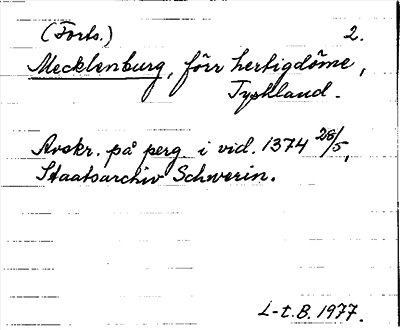 (Forts.) 2.
Mecklenburg, förr hertigdöme,
Tyskland.
Avskr. på perg. i vid. 1374 28/5,
Staatsarchiv Schwerin.
L-t.B. 1977.